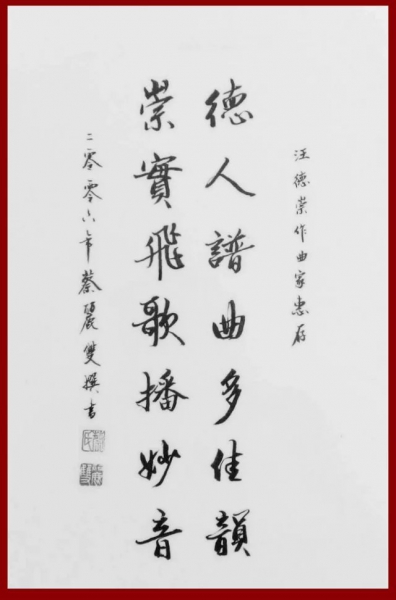 汪德崇作曲家惠存
德人譜曲多佳韻
崇實飛歌播妙音
二零零六年蔡麗雙撰書